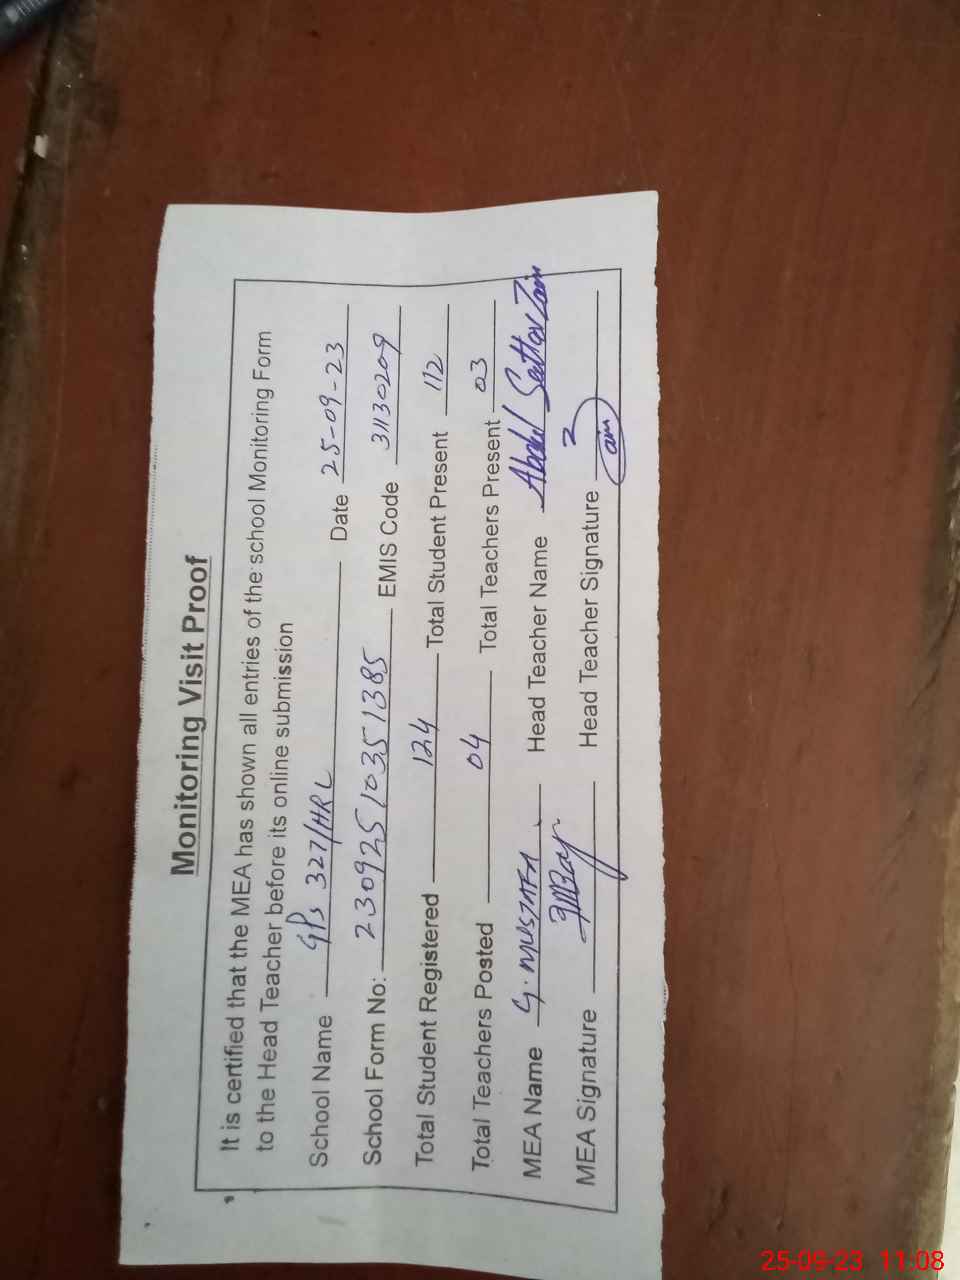 Monitoring Visit Proof
It is certified that the MEA has shown all entries of the school Monitoring Form
to the Head Teacher before its online submission
School Name GPs 327/HRL Date 25-09-23
School Form No: 230925103551385 EMIS Code 31130209
Total Student Registered 124 Total Student Present 112
Total Teachers Posted 04 Total Teachers Present 03
MEA Name G. MUSTAFA Head Teacher Name Abdul Sattar Zain
MEA Signature Head Teacher Signature Zain
25-09-23 11:08